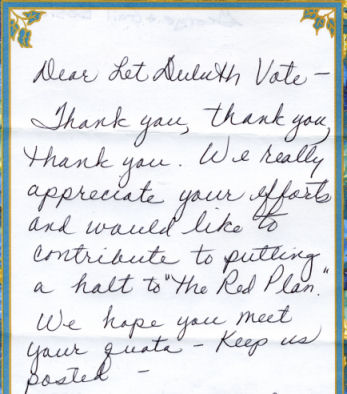 Dear Let Duluth Vote –
Thank you, thank you,
thank you. We really
appreciate your efforts
and would like to
contribute to putting
a halt to "The Red Plan."
We hope you meet
your quota – Keep us
posted –